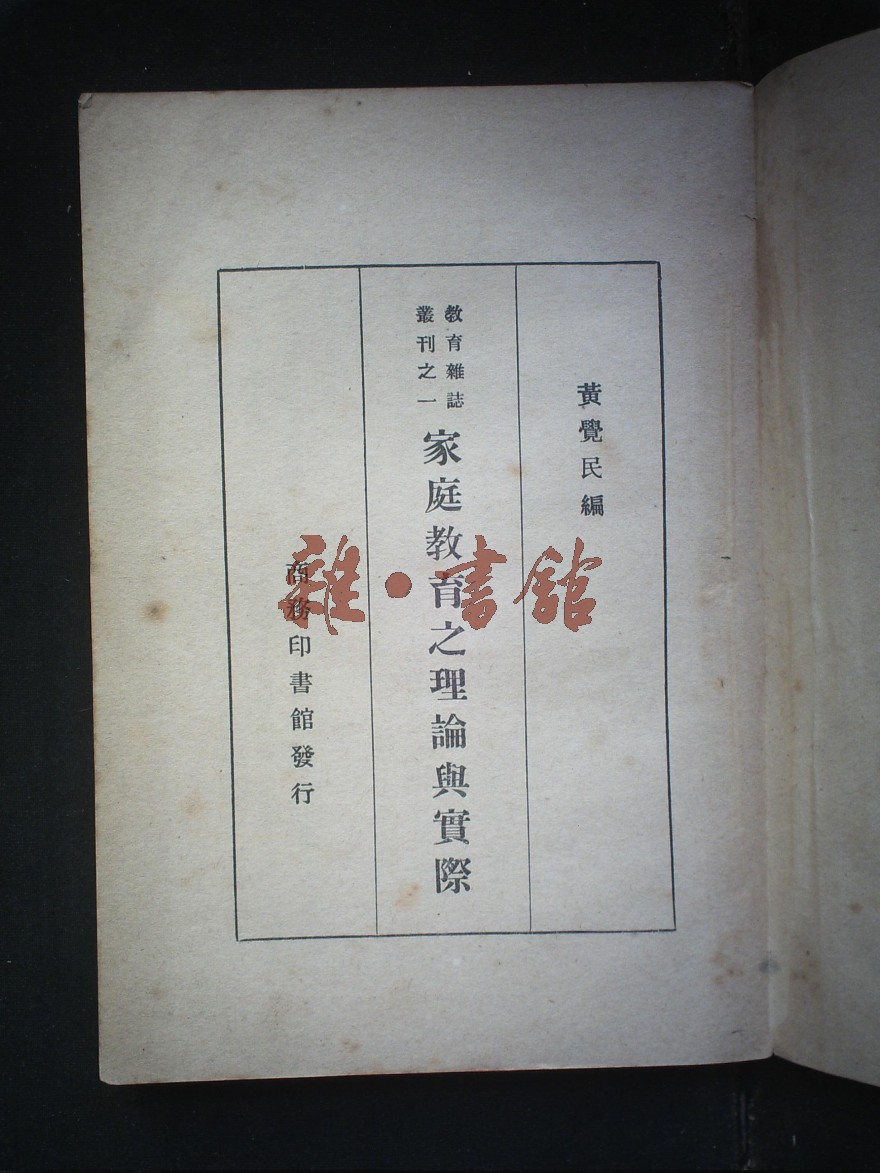 黃覺民編
教育雜誌
叢刊之一
家庭教育之理論與實際
商務印書館發行
雜·書館